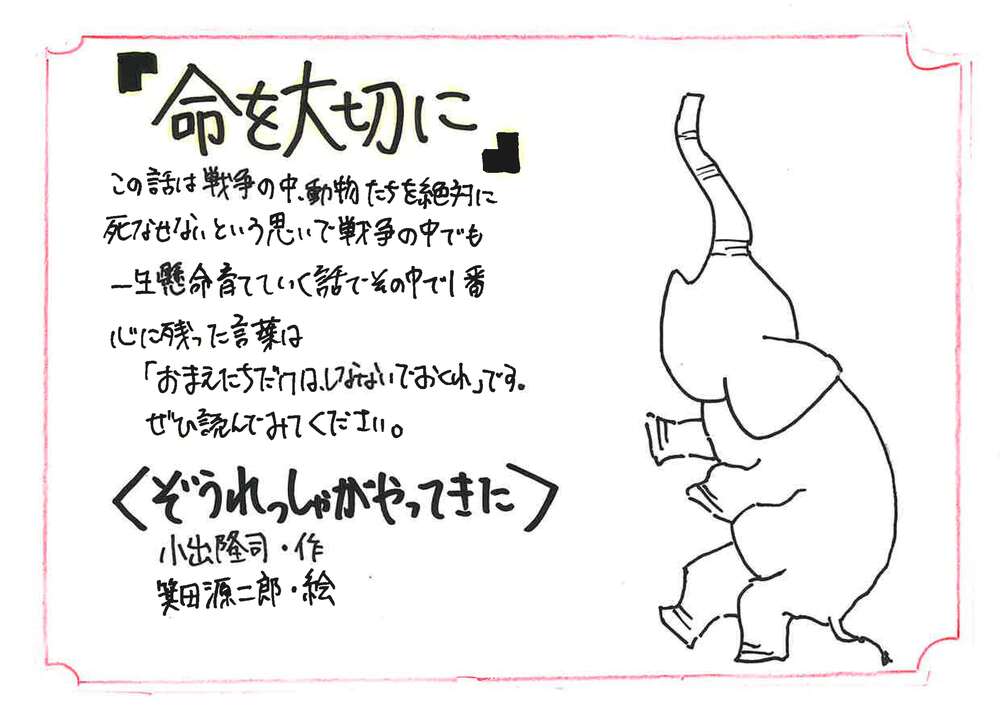 『命を大切に』
この話は戦争の中、動物たちを絶対に
死なせないという思いで戦争の中でも
一生懸命育てていく話でその中で1番
心に残った言葉は
「おまえたちだけは、しなないでおくれ」です。
ぜひ読んでみてください。
〈ぞうれっしゃがやってきた〉
小出隆司・作
箕田源二郎・絵